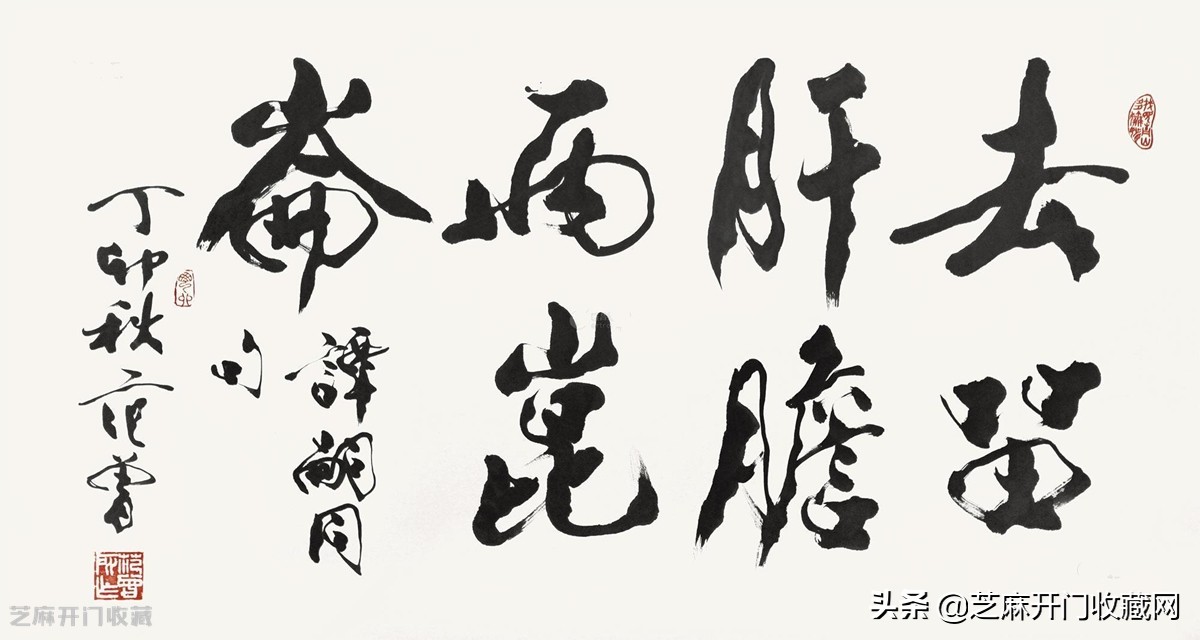 去留
肝膽
兩崑
崙
譚嗣同
句
丁卯秋 范曾
芝麻开门收藏
头条 @芝麻开门收藏网